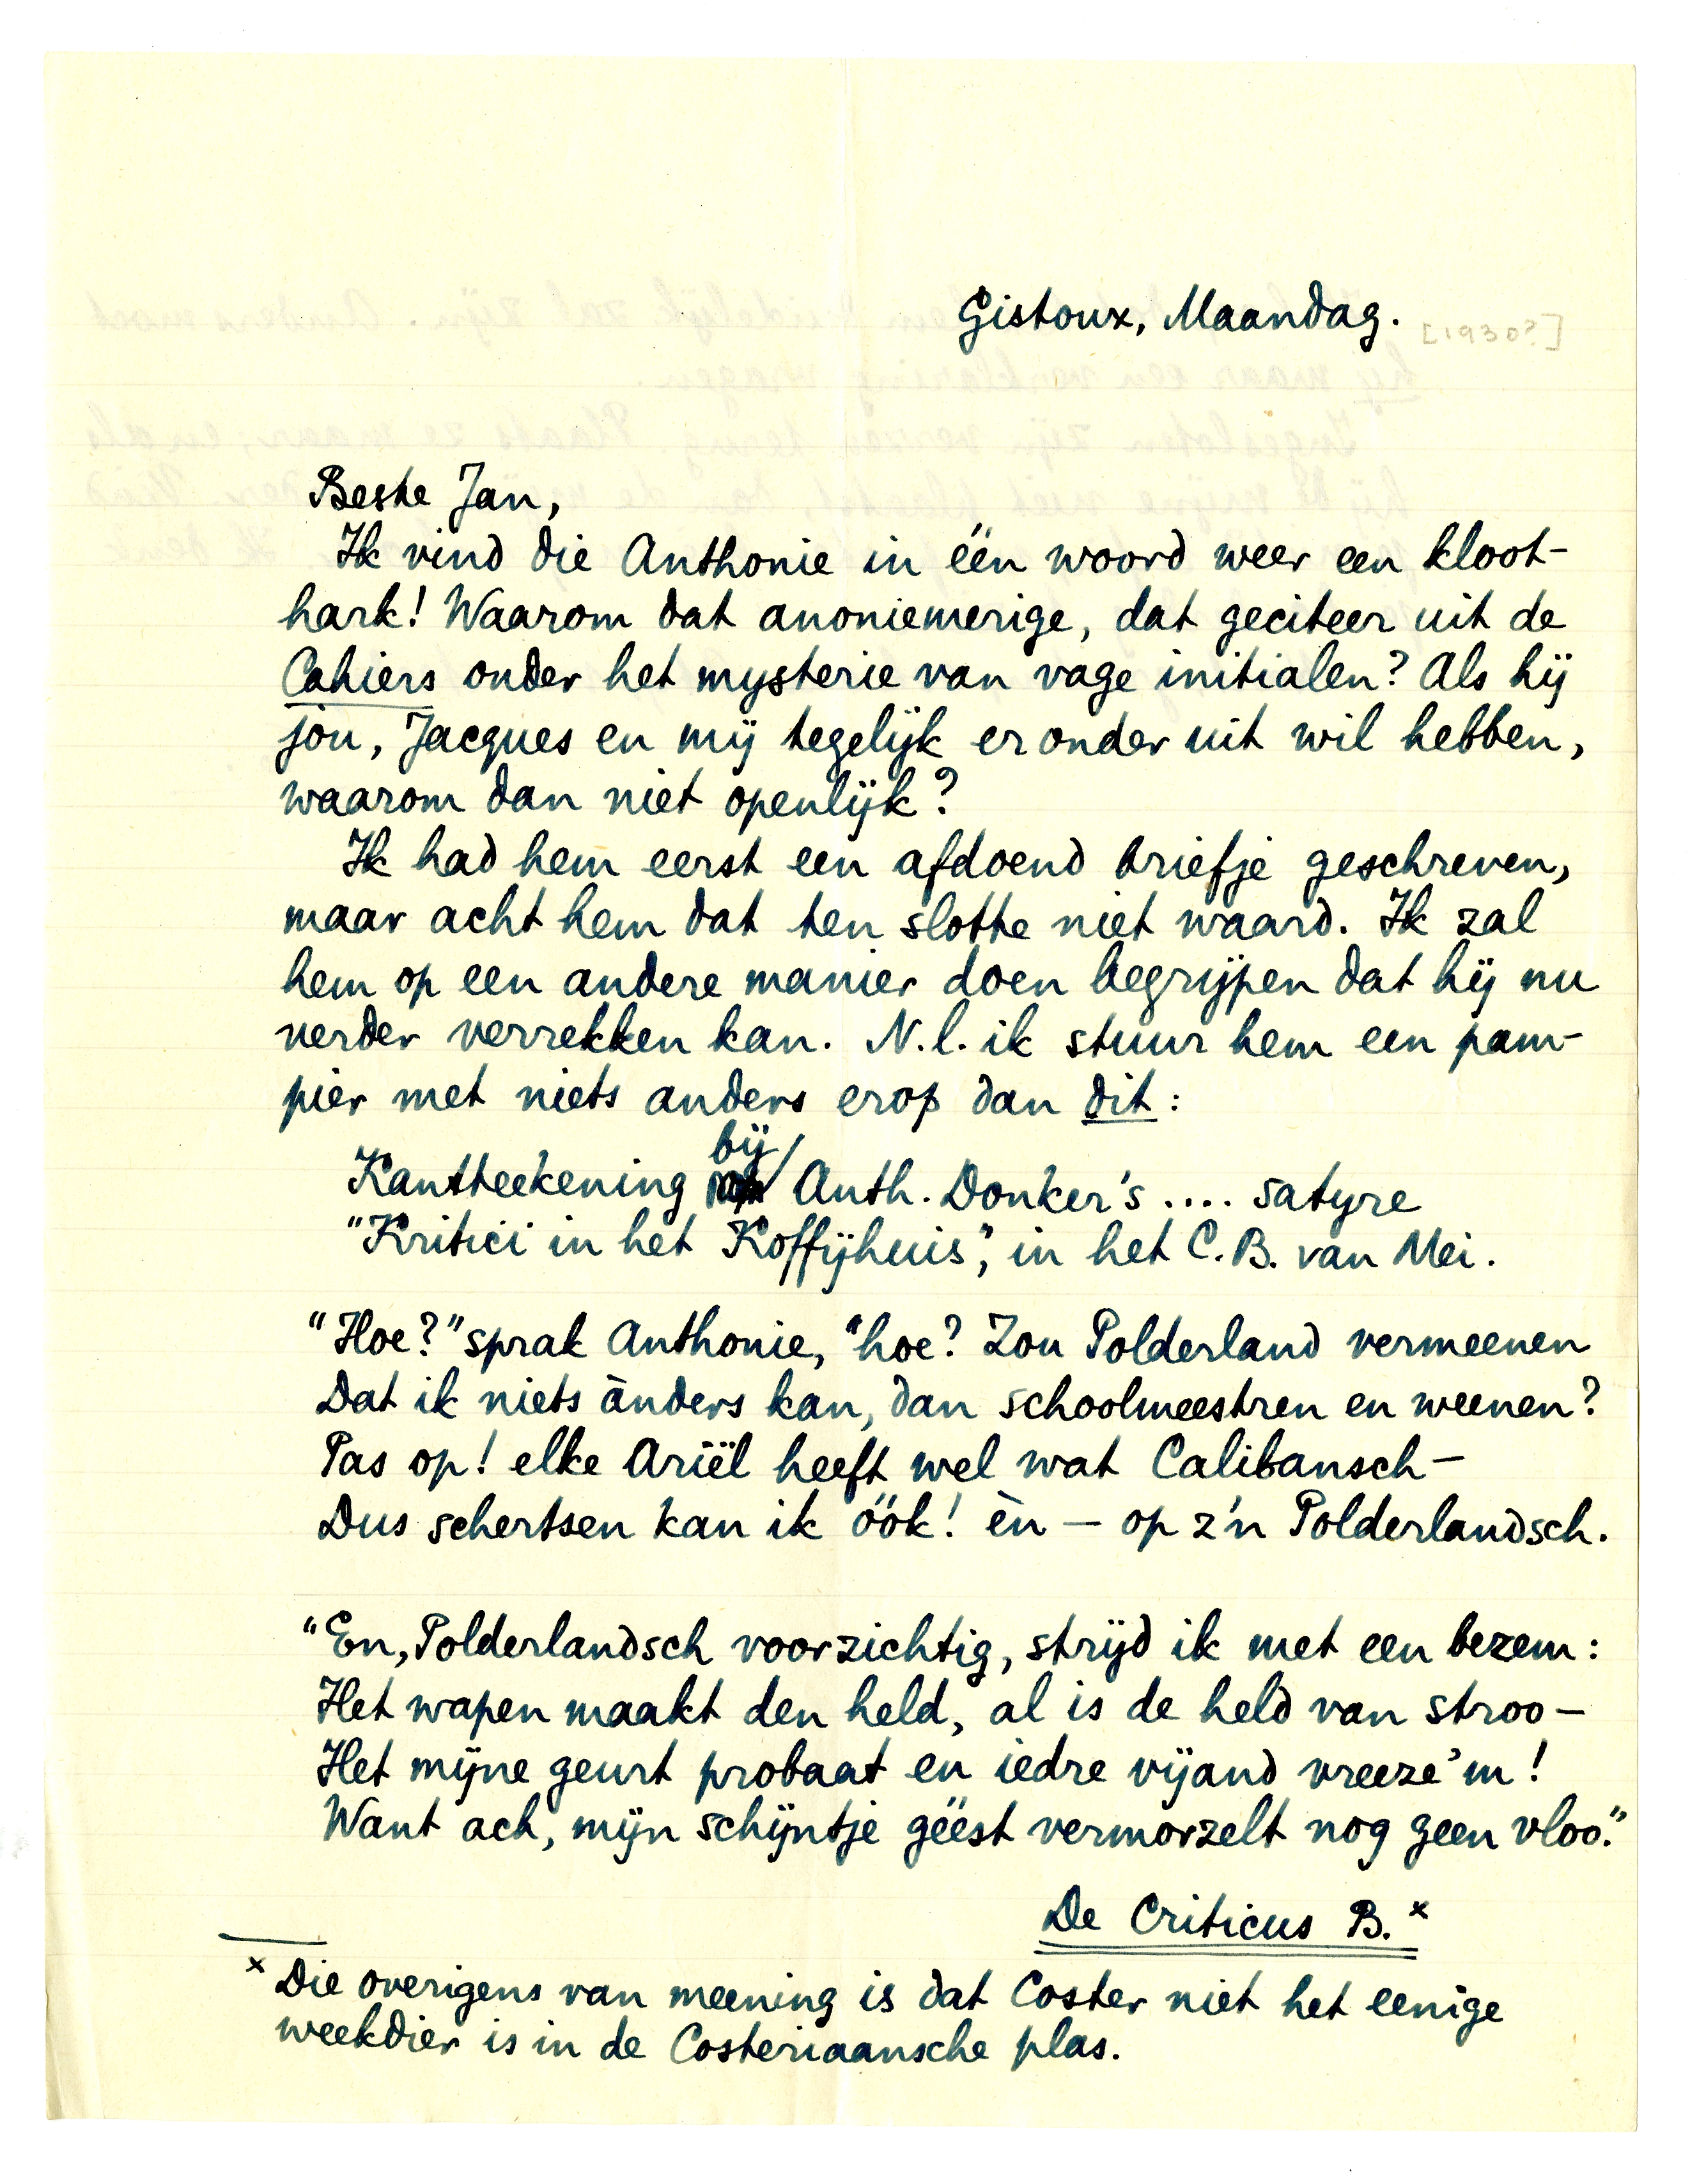 Gistoux, Maandag.
[1930?]
Beste Jan,
Ik vind die Anthonie in één woord weer een kloot-
hark! Waarom dat anoniemerige, dat geciteer uit de
Cahiers onder het mysterie van vage initialen? Als hij
jou, Jacques en mij tegelijk eronder uit wil hebben,
waarom dan niet openlijk?
Ik had hem eerst een afdoend briefje geschreven,
maar acht hem dat ten slotte niet waard. Ik zal
hem op een andere manier doen begrijpen dat hij nu
verder verrekken kan. N.l. ik stuur hem een pam-
pier met niets anders erop dan dit:
Kantteekening bij Anth. Donker's .... satyre
"Kritici in het Koffijhuis", in het C.B. van Mei.
"Hoe?" sprak Anthonie, "hoe? Zou Polderland vermeenen
Dat ik niets ànders kan, dan schoolmeestren en weenen?
Pas op! elke Ariël heeft wel wat Calibansch —
Dus schertsen kan ik óók! èn — op z'n Polderlandsch.
"En, Polderlandsch voorzichtig, strijd ik met een bezem:
Het wapen maakt den held, al is de held van stroo —
Het mijne geurt probaat en iedre vijand vreeze 'm!
Want ach, mijn schijntje géést vermorzelt nog geen vloo."
De Criticus B. ×
× Die overigens van meening is dat Coster niet het eenige
weekdier is in de Costeriaansche plas.